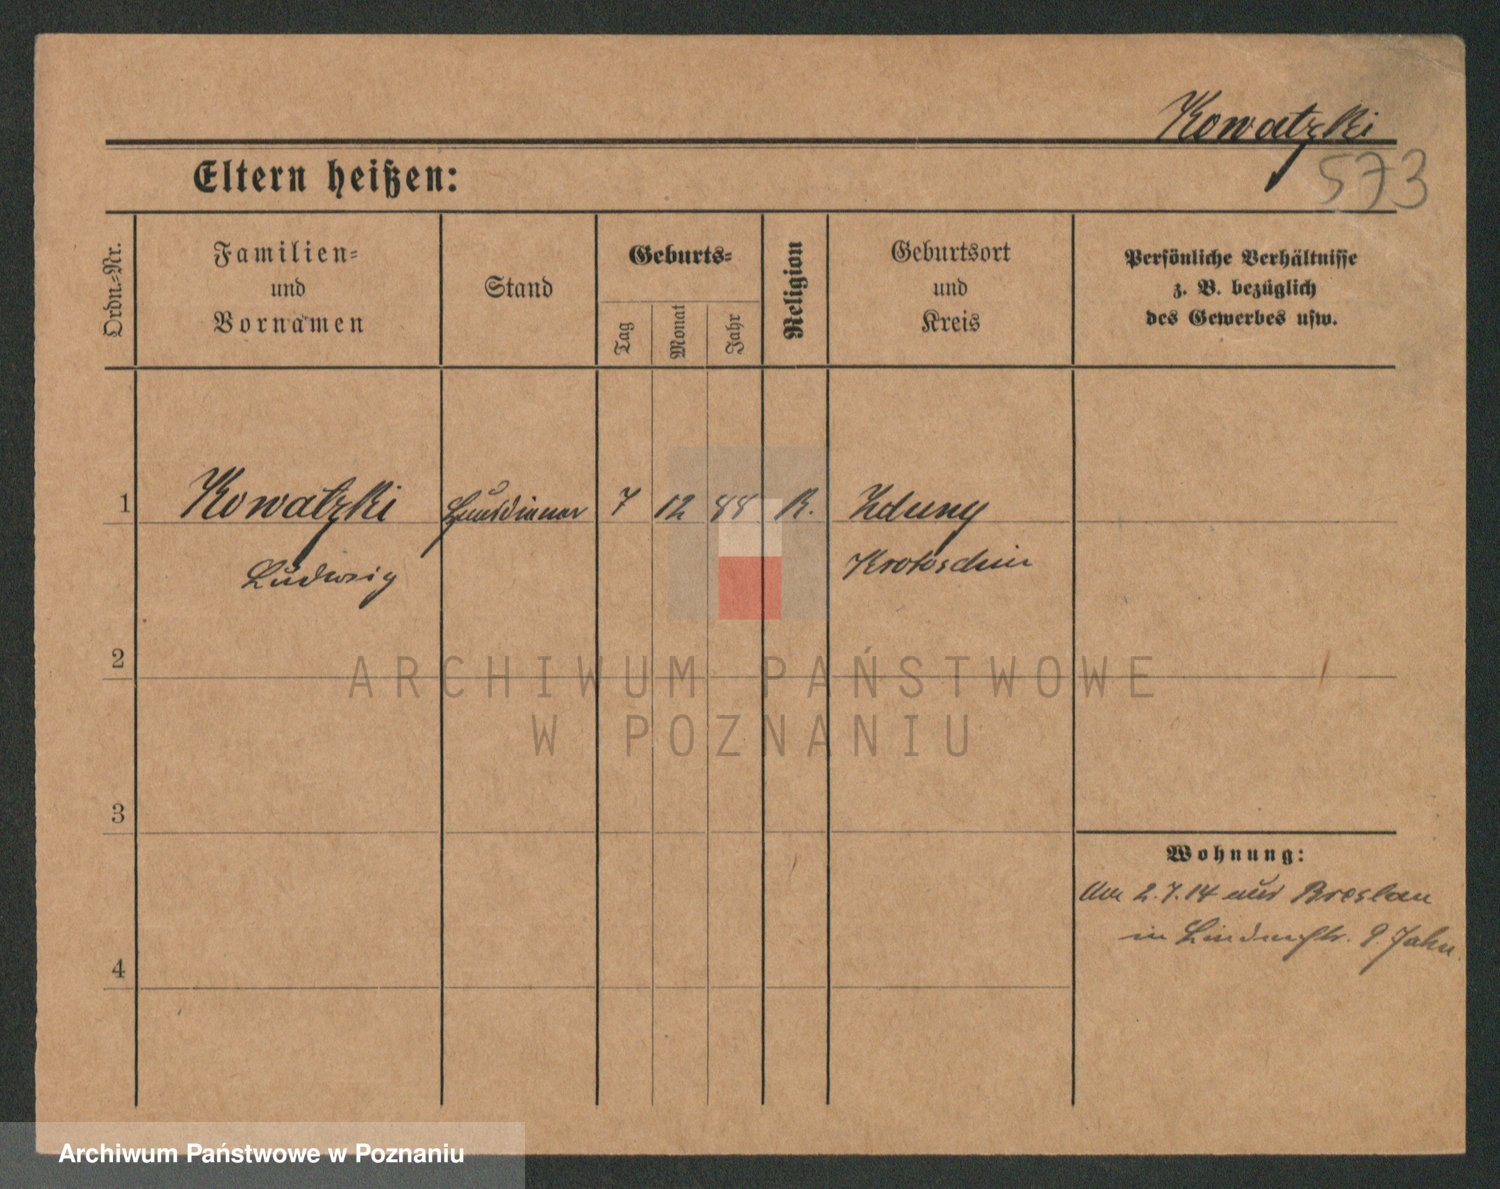 Kowatzki
573
Eltern heißen:
Ordn.=Nr.
Familien=
und
Vornamen
Stand
Geburts=
Tag
Monat
Jahr
Religion
Geburtsort
und
Kreis
Persönliche Verhältnisse
z. B. bezüglich
des Gewerbes usw.
1 Kowatzki Hausdiener 7 12 88 K. Zduny
Ludwig Krotoschin
2
3
4
Wohnung:
Am 2.7.14 aus Breslau
in Lindenstr. 9. Jahn.
ARCHIWUM PAŃSTWOWE
W POZNANIU
Archiwum Państwowe w Poznaniu